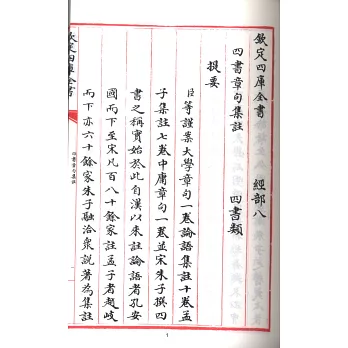 欽定四庫全書 經部八
四書章句集註 四書類
提要
臣等謹案大學章句一卷論語集註十卷孟
子集註七卷中庸章句一卷並宋朱子撰四
書之稱實始於此自漢以來註論語者孔安
國而下至宋凡百八十餘家註孟子者趙岐
而下亦六十餘家朱子融洽衆說著為集註
欽定四庫全書
四書章句集註
1